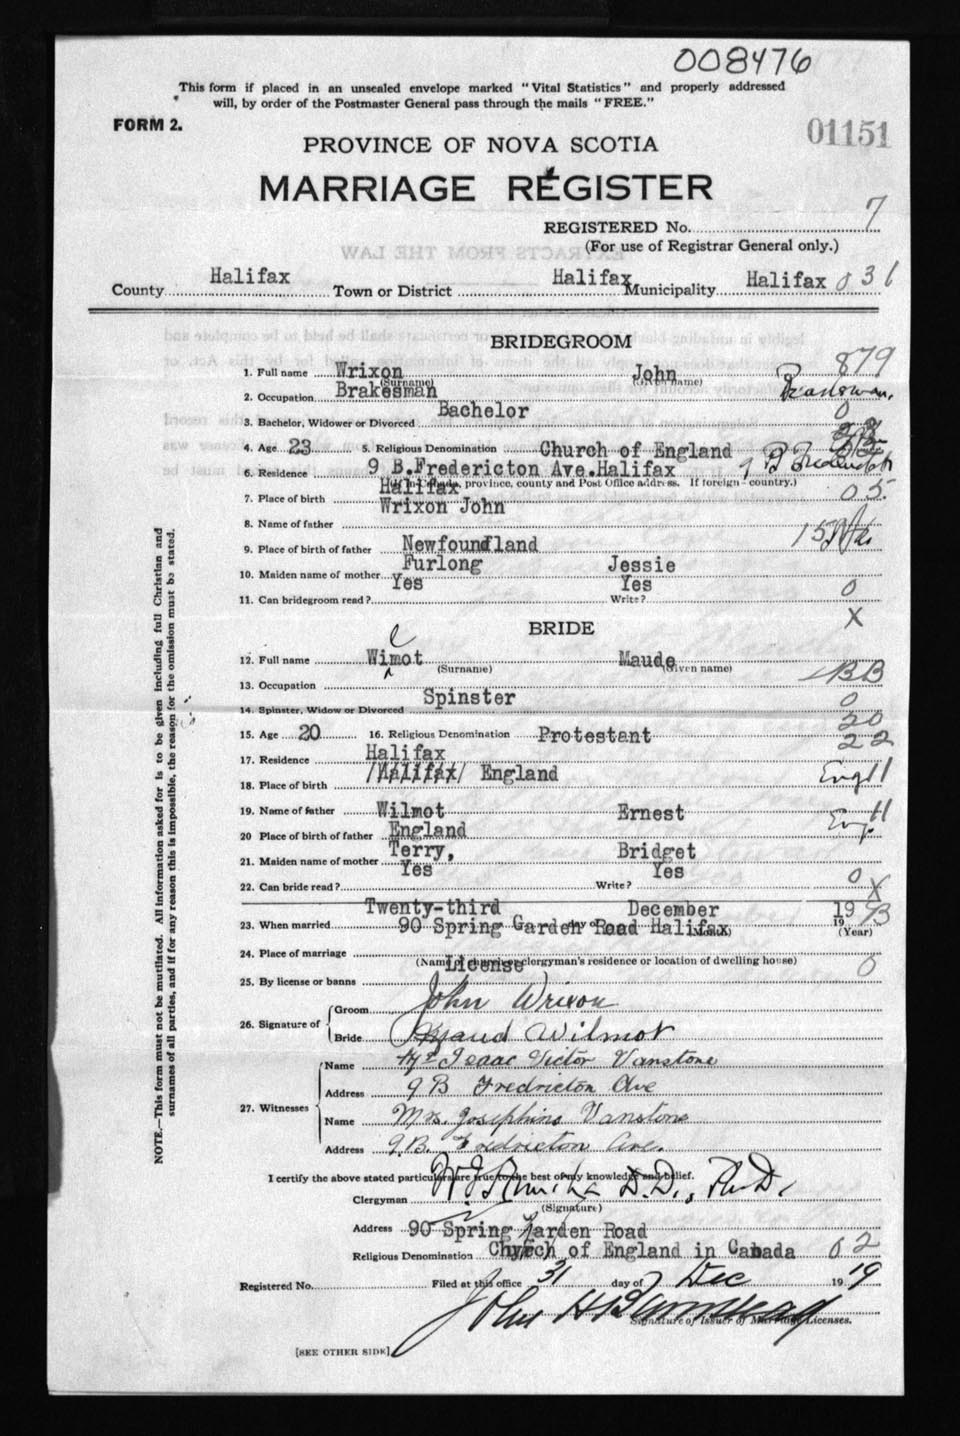 008476
This form if placed in an unsealed envelope marked "Vital Statistics" and properly addressed
will, by order of the Postmaster General pass through the mails "FREE."
FORM 2.
01151
PROVINCE OF NOVA SCOTIA
MARRIAGE REGISTER
REGISTERED No. 7
(For use of Registrar General only.)
County Halifax Town or District Halifax Municipality Halifax 031
BRIDEGROOM
879
1. Full name Wrixon John
(Surname) (Given name)
2. Occupation Brakesman
3. Bachelor, Widower or Divorced Bachelor 0
4. Age 23 5. Religious Denomination Church of England
6. Residence 9 B.Fredericton Ave.Halifax
(If in Canada, province, county and Post Office address. If foreign - country.)
7. Place of birth Halifax 05
8. Name of father Wrixon John
9. Place of birth of father Newfoundland 15
10. Maiden name of mother Furlong Jessie
11. Can bridegroom read? Yes Write? Yes 0
X
BRIDE
12. Full name Wilmot Maude
(Surname) (Given name)
13. Occupation
14. Spinster, Widow or Divorced Spinster 0
15. Age 20 16. Religious Denomination Protestant 20
22
17. Residence Halifax
18. Place of birth /Halifax/ England Engl 11
19. Name of father Wilmot Ernest
20 Place of birth of father England Eng 11
21. Maiden name of mother Terry, Bridget
22. Can bride read? Yes Write? Yes 0
X
23. When married Twenty-third day of December 19
(Month) (Year)
24. Place of marriage 90 Spring Garden Road Halifax
(Name of church or clergyman's residence or location of dwelling house)
25. By license or banns License 0
26. Signature of Groom John Wrixon
Bride Maud Wilmot
27. Witnesses Name Isaac Victor Vanstone
Address 9 B Fredricton Ave
Name Mrs. Josephine Vanstone
Address 9.B. Fredricton Ave.
I certify the above stated particulars are true to the best of my knowledge and belief.
Clergyman D.D., Ph.D.
(Signature)
Address 90 Spring Garden Road
Religious Denomination Church of England in Canada 02
Registered No. Filed at this office 31 day of Dec 19 19
John H
Signature of Issuer of Marriage Licenses.
[SEE OTHER SIDE]
NOTE.—This form must not be mutilated. All information asked for is to be given including full Christian and
surnames of all parties, and if for any reason this is impossible, the reason for the omission must be stated.